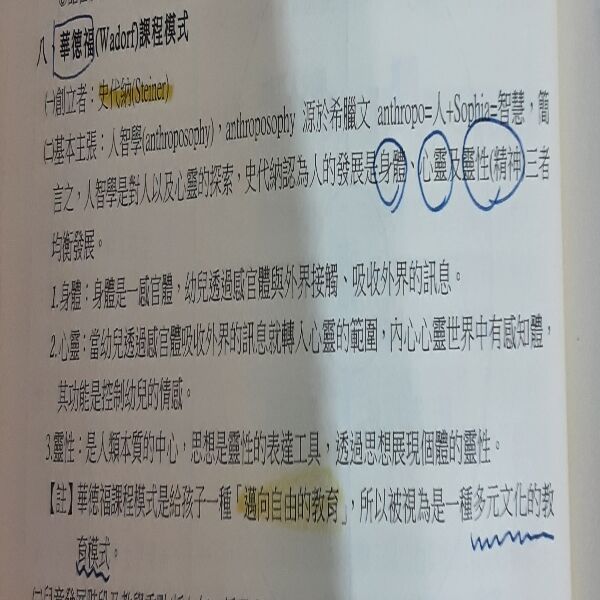 八、華德福(Wadorf)課程模式
㈠創立者：史代納(Steiner)
㈡基本主張：人智學(anthroposophy)，anthroposophy 源於希臘文 anthropo=人+Sophia=智慧，簡
言之，人智學是對人以及心靈的探索，史代納認為人的發展是身體、心靈及靈性(精神)三者
均衡發展。
1.身體：身體是一感官體，幼兒透過感官體與外界接觸、吸收外界的訊息。
2.心靈：當幼兒透過感官體吸收外界的訊息就轉入心靈的範圍，內心心靈世界中有感知體，
其功能是控制幼兒的情感。
3.靈性：是人類本質的中心，思想是靈性的表達工具，透過思想展現個體的靈性。
【註】華德福課程模式是給孩子一種「邁向自由的教育」，所以被視為是一種多元文化的教
育模式。